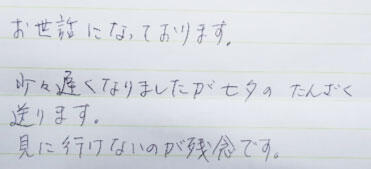 お世話になっております。
少々遅くなりましたが七夕の たんざく
送ります。
見に行けないのが残念です。